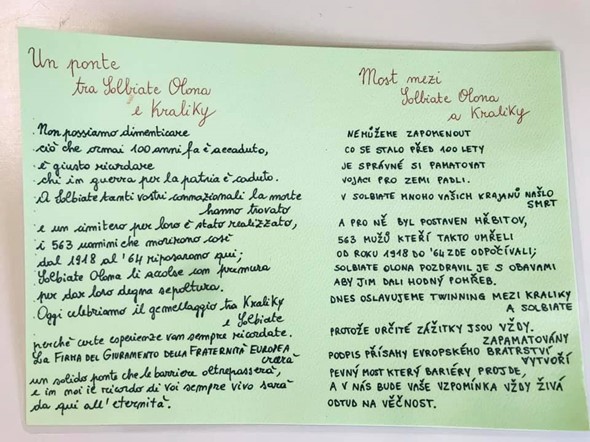 Un ponte
tra Solbiate Olona
e Kraliky
Non possiamo dimenticare
ciò che ormai 100 anni fa è accaduto,
è giusto ricordare
chi in guerra per la patria è caduto.
A Solbiate tanti vostri connazionali la morte
hanno trovato
e un cimitero per loro è stato realizzato,
i 563 uomini che morirono così
dal 1918 al '64 riposarono qui;
Solbiate Olona li accolse con premura
per dar loro degna sepoltura.
Oggi celebriamo il gemellaggio tra Kraliky
e Solbiate
perché certe esperienze van sempre ricordate.
La FIRMA DEL GIURAMENTO DELLA FRATERNITÀ EUROPEA
creerà
un solido ponte che le barriere oltrepasserà,
e in noi il ricordo di voi sempre vivo sarà
da qui all'eternità.
Most mezi
Solbiate Olona
a Kraliky
NEMŮŽEME ZAPOMENOUT
CO SE STALO PŘED 100 LETY
JE SPRÁVNÉ SI PAMATOVAT
VOJACI PRO ZEMI PADLI.
V SOLBIATE MNOHO VAŠICH KRAJANŮ NAŠLO
SMRT
A PRO NĚ BYL POSTAVEN HŘBITOV,
563 MUŽŮ KTEŘÍ TAKTO UMŘELI
OD ROKU 1918 DO '64 ZDE ODPOČÍVALI;
SOLBIATE OLONA POZDRAVIL JE S OBAVAMI
ABY JIM DALI HODNÝ POHŘEB.
DNES OSLAVUJEME TWINNING MEZI KRALIKY
A SOLBIATE
PROTOŽE URČITÉ ZÁŽITKY JSOU VŽDY.
ZAPAMATOVÁNY
PODPIS PŘÍSAHY EVROPSKÉHO BRATRSTVÍ
VYTVOŘÍ
PEVNÝ MOST KTERÝ BARIÉRY PROJDE,
A V NÁS BUDE VAŠE VZPOMÍNKA VŽDY ŽIVÁ
ODTUD NA VĚČNOST.